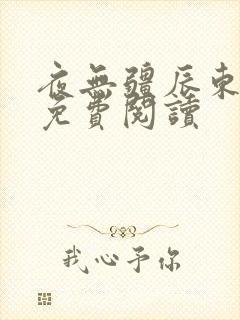 夜無疆辰東
免費閱讀
我心予你